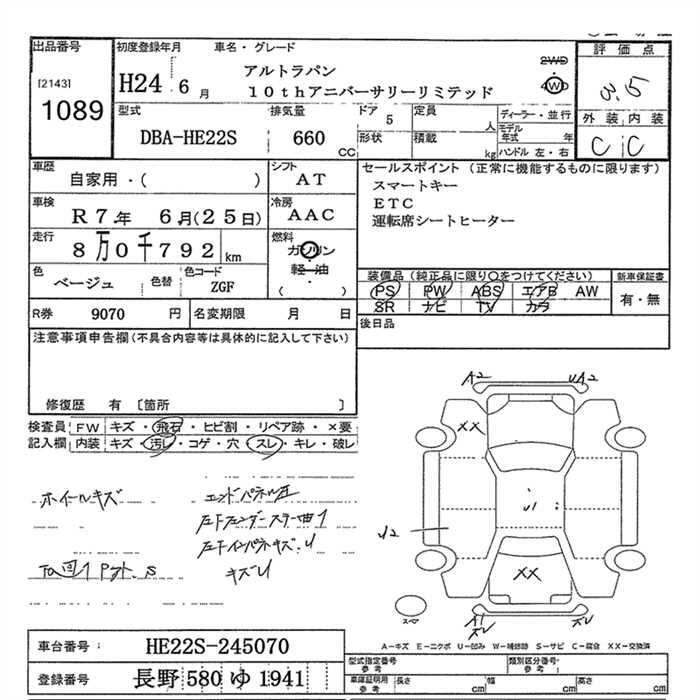 出品番号 初度登録年月 車名・グレード 評価点
[2143]
1089
H24 6月 アルトラパン
10thアニバーサリーリミテッド
2WD
4WD
3.5
外装 内装
C C
型式 排気量 ドア 定員 ディーラー・並行
DBA-HE22S 660 CC 5 人 モデル年式 年
形状 積載 kg ハンドル 左・右
車歴 シフト セールスポイント (正常に機能するものに限ります)
自家用・( ) AT スマートキー
車検 冷房 ETC
R 7年 6月(25日) AAC 運転席シートヒーター
走行 燃料
8万0千792 km ガソリン
軽・油
( )
色 色替 色コード
ベージュ ZGF
装備品 (純正品に限り○をつけてください) 新車保証書
PS PW ABS エアB AW 有・無
SR ナビ TV カワ
R券 9070 円 名変期限 月 日 後日品
注意事項申告欄 (不具合内容等は具体的に記入して下さい)
修復歴 有 〔箇所 〕
検査員 FW キズ・飛石・ヒビ割・リペア跡・×要
記入欄 内装 キズ・汚レ・コゲ・穴・スレ・キレ・破レ
ホイールキズ エンドパネル圧
左Fフェンダーステー曲1
左Fインパネキズ.U
キズU
A2 UA2
XX
U1
U2
XX
スペア
A1
ズレ
A-キズ E-エクボ U-凹み W-補修跡 S-サビ C-腐食 XX-交換済
車台番号: HE22S-245070
登録番号 長野 580 ゆ 1941
型式指定番号 参考 類別区分番号 参考
車庫証明用 参考 長さ cm 幅 cm 高さ cm